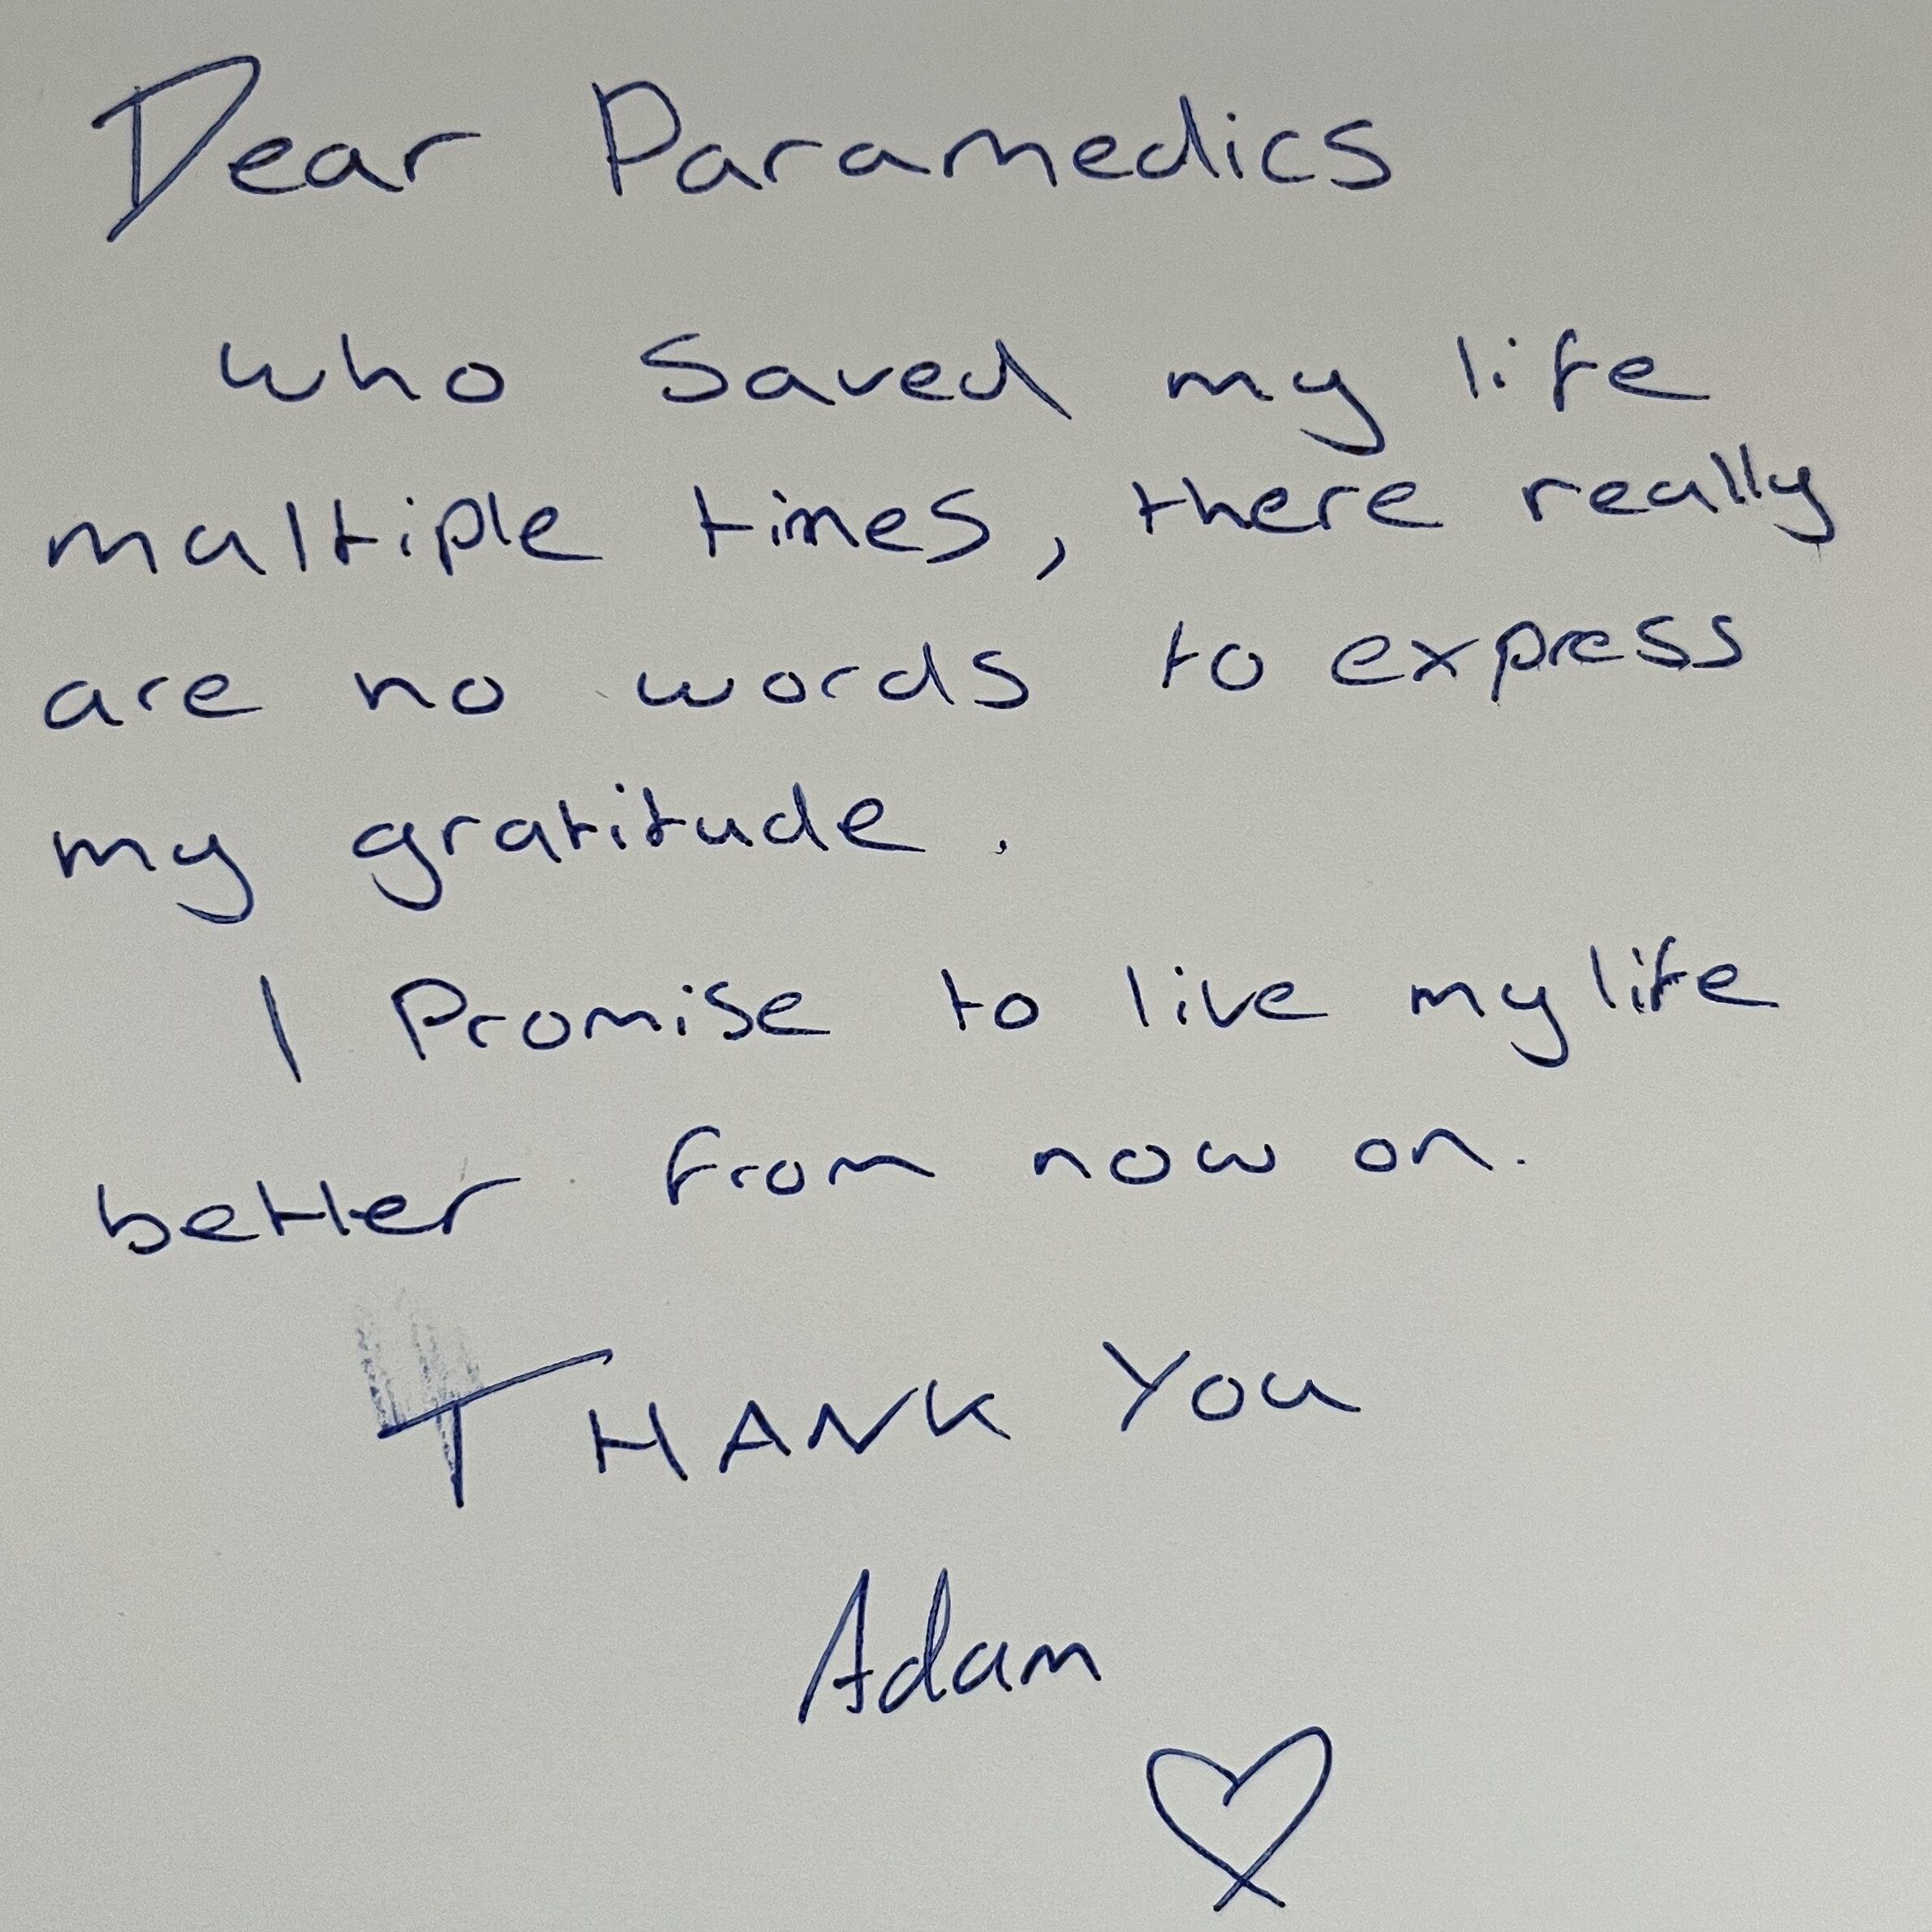 Dear Paramedics
who saved my life
multiple times, there really
are no words to express
my gratitude.
I Promise to live my life
better from now on.
THANK YOU
Adam